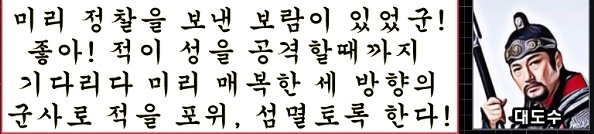 미리 정찰을 보낸 보람이 있었군!
좋아! 적이 성을 공격할때까지
기다리다 미리 매복한 세 방향의
군사로 적을 포위, 섬멸토록 한다!
대도수